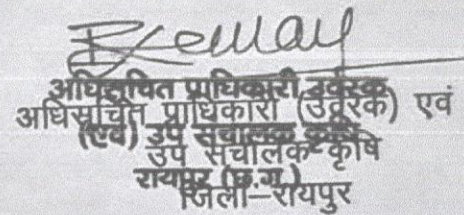 अधिसूचित प्राधिकारी उर्वरक
अधिसूचित प्राधिकारी (उर्वरक) एवं
(एवं) उप संचालक कृषि
उप संचालक कृषि
रायपुर (छ.ग.)
जिला-रायपुर